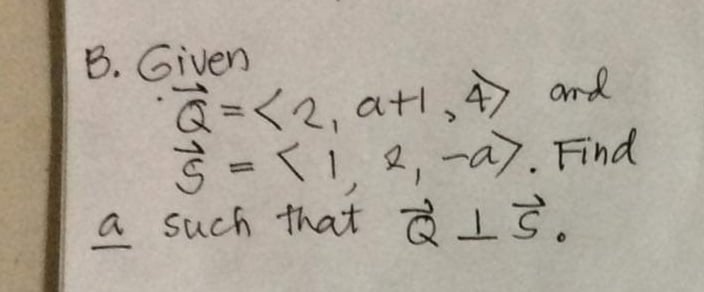 B. Given
Q⃗ = <2, a+1, 4> and
S⃗ = <1, 2, -a>. Find
a such that Q⃗ ⊥ S⃗.